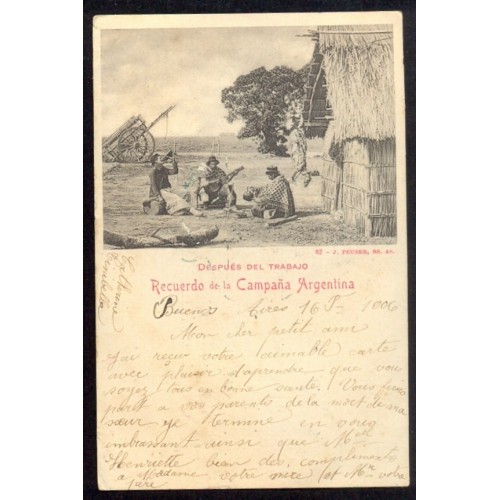 82 - J. PEUSER, BS. AS.
DESPUÉS DEL TRABAJO
Recuerdo de la Campaña Argentina
Buenos Aires 16
Mon cher petit ami
j'ai reçu votre aimable carte
avec plaisir d'aprendre que vous
soyez tous en bonne santé. Vous
part a vos parents de la mort de ma
sœur je termine en vous
embrassant ainsi que Melle
Henriette bien des compliments
a Madame votre mère et Mr votre
père